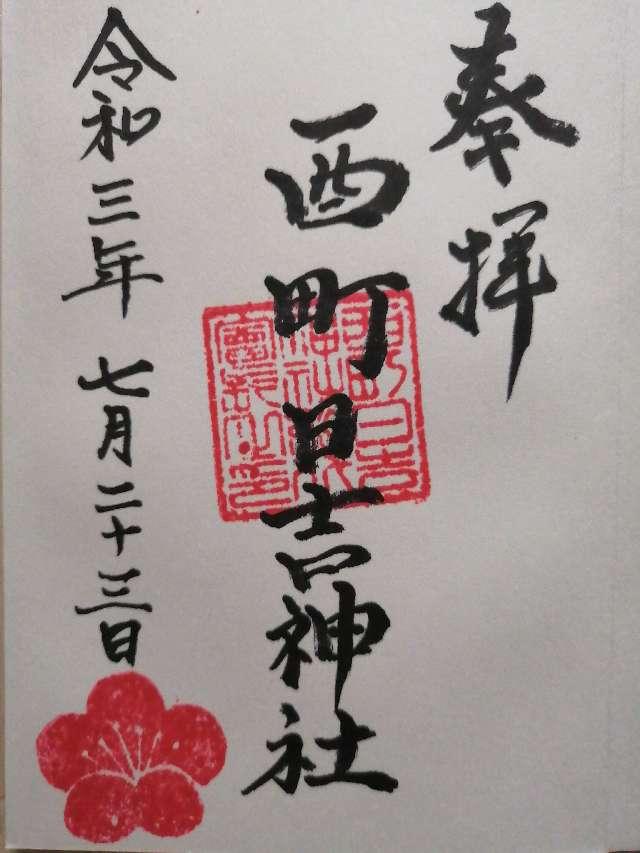 奉拝
西町日吉神社
令和三年 七月二十三日